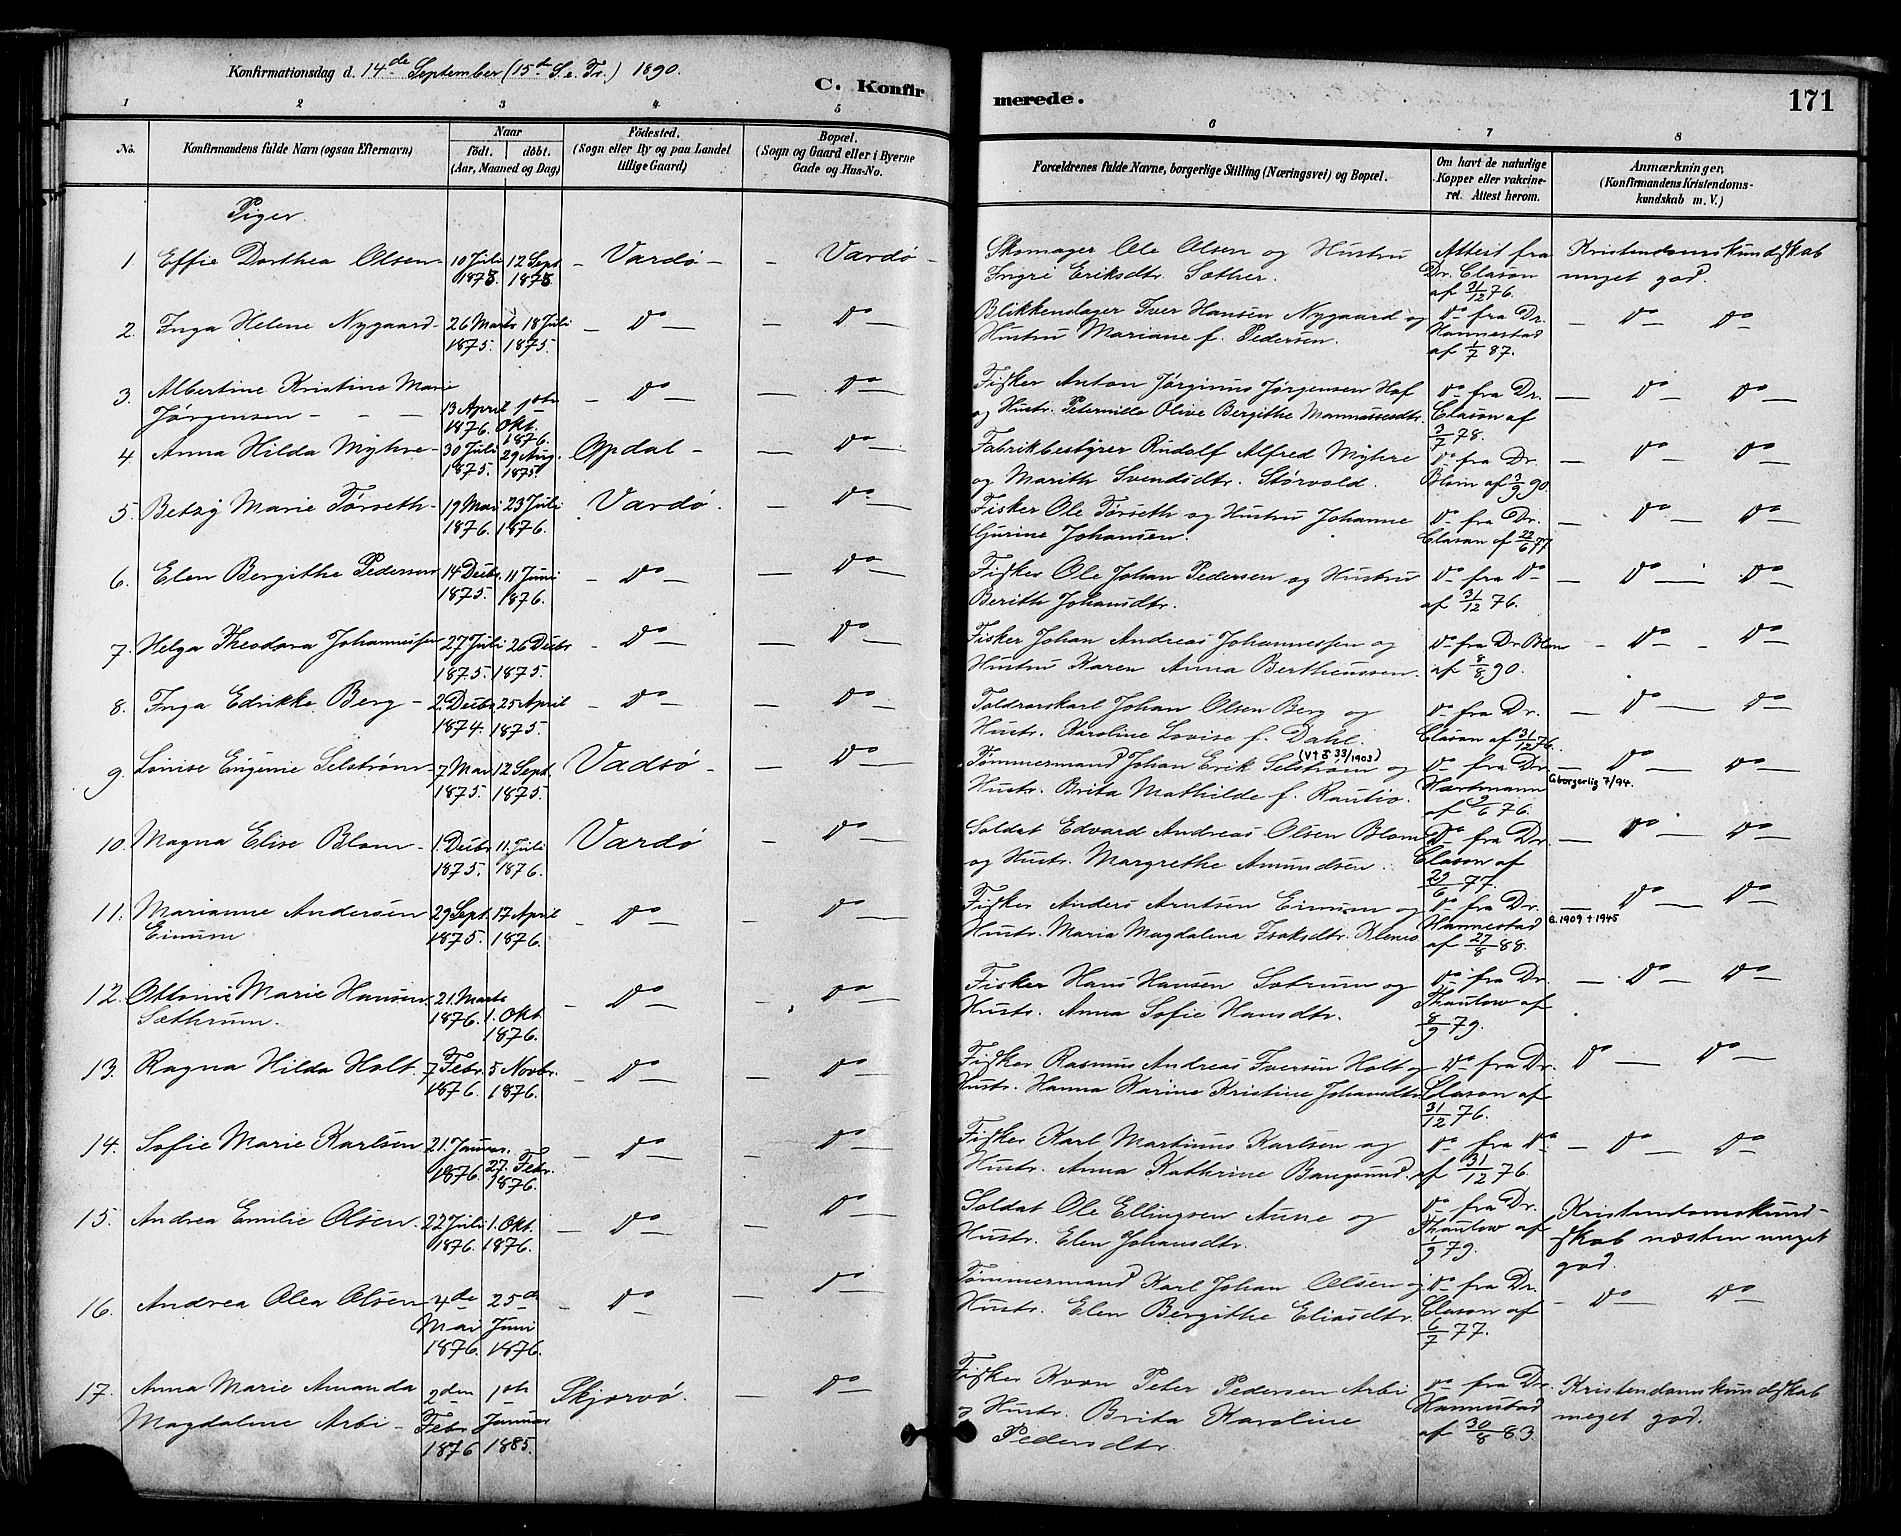 Konfirmationsdag d. 14de September (15de S. e. Tr.) 1890.
C. Konfirmerede.
171
1 2 3 4 5 6 7 8
No.
Konfirmandens fulde Navn (ogsaa Efternavn)
Naar
födt. döbt.
(Aar, Maaned og Dag)
Födested.
(Sogn eller By og paa Landet
tillige Gaard)
Bopæl.
(Sogn og Gaard eller i Byerne
Gade og Hus-No.
Forældrenes fulde Navne, borgerlige Stilling (Næringsvei) og Bopæl.
Om havt de naturlige
Kopper eller vakcine-
ret. Attest herom.
Anmærkninger,
(Konfirmandens Kristendoms-
kundskab m. V.)
Piger.
1. Effie Dorthea Olsen - 10 Juli 1875. 12 Sept 1875. - Vardö - - Vardö - Skomager Ole Olsen og Hustru Attest fra Kristendomskundskab
Ingri Eriksdtr. Sæther. Dr. Clason af 31/12 76. meget god.
2. Inga Helene Nygaard - 26 Marts 1875. 18 Juli 1875. - Do - - Do - Blikkenslager Iver Hansen Nygaard og Do fra Dr. - Do - Do
Hustru Mariane f. Pedersen. Hannestad af 1/7 87.
3. Albertine Kristine Marie
Jørgensen - - - 13 April 1876. 1ste Okt. 1876. - Do - - Do - Fisker Anton Jørginus Jørgensen Hof Do fra Dr. - Do - Do
og Hustr. Peternille Olive Bergithe Mannassesdtr. Clason af 3/7 78.
4. Anna Hilda Myhre - 30 Juli 1875. 29 Aug. 1875. Opdal - - Do - Fabrikbestyrer Rudolf Alfred Myhre Do fra Dr. - Do - Do
og Marith Svendsdtr. Størvold. Blom af 3/9 90.
5. Betzy Marie Tørseth - 19 Mai 1876. 23 Juli 1876. Vardö. - Do - Fisker Ole Tørseth og Hustru Johanne Do fra Dr. - Do - Do
Gurine Johansen. Clason af 22/6 77
6. Elen Bergithe Pedersen 14 Decbr. 1875. 11 Juni 1876. - Do - - Do - Fisker Ole Johan Pedersen og Hustru Do fra Do - Do - Do
Berith Johansdtr. af 31/12 76.
7. Helga Theodora Johannessen 27 Juli 1875. 26 Decbr 1875. - Do - - Do - Fisker Johan Andreas Johannessen og Do fra Dr Blom - Do - Do
Hustru Karen Anna Bertheussen. af 8/8 90.
8. Inga Edrikke Berg - 2. Decbr 1874. 25 April 1875. - Do - - Do - Toldrorskarl Johan Olsen Berg og Do fra Dr. - Do - Do
Hustr. Karoline Lovise f. Dahl. Clason af 31/12 76.
9. Lovise Eugenie Selstrøm - 7 Mai 1875. 12 Sept. 1875. Vadsö - - Do - Tømmermand Johan Erik Selstrøm og (Vt D 33/1903) Do fra Dr. - Do - Do
Hustr. Brita Mathilde f. Rautio. Hartmann af 9/6 76. G. borgerlig 7/94.
10. Magna Elise Blom - 1. Decbr 1875. 11. Juli 1876. Vardö - Do - Soldat Edvard Andreas Olsen Blom Do fra Dr. - Do - Do
og Hustr. Margrethe Amundsen. Clason af 29/6 77.
11. Marianne Andersen
Einum 29 Sept. 1875. 17 April 1876. - Do - - Do - Fisker Anders Arntsen Einum og Do fra Dr. - Do - Do
Hustr. Maria Magdalena Isaksdtr. Klenes Hannestad af 27/8 88. G. 1909 + 1945
12. Ottomine Marie Hansen
Sæthrum. 21. Marts 1876. 1. Okt. 1876. - Do - - Do - Fisker Hans Hansen Sætrum og Do fra Dr. - Do - Do
Hustr. Anna Sofie Hansdtr. Thaulow af 8/9 79.
13. Ragna Hilda Holt. 7 Febr. 1876. 5 Novbr. 1876. - Do - - Do - Fisker Rasmus Andreas Iversen Holt og Do fra Dr. Do - Do
Hustr. Hanna Karina Kristine Johansdtr Clason af 31/12 76.
14. Sofie Marie Karlsen 21. Januar. 1876. 27. Febr. 1876. - Do - - Do - Fisker Karl Martinus Karlsen og Do fra Do - Do - Do
Hustr. Anna Kathrine Bangsund. af 31/12 76.
15. Andrea Emilie Olsen. 22 Juli 1876. 1. Okt. 1876. - Do - - Do - Soldat Ole Ellingsen Aune og Do fra Dr. Kristendomskund-
Hustr. Elen Johansdtr. Thaulow af 1/9 79. skab næsten meget god.
16. Andrea Olea Olsen 4de Mai 1876. 25de Juni 1876. - Do - - Do - Tømmermand Karl Johan Olsen og Do fra Dr. - Do - Do
Hustr. Elen Bergithe Eliasdtr. Clason af 6/7 77.
17. Anna Marie Amanda
Magdalene Arbi - 2den Febr. 1876 1ste Januar 1885. Skjervö. - Do - Fisker Kvæn Peter Pedersen Arbi Do fra Dr. Kristendomskundskab
og Hustr. Brita Karoline Hannestad meget god.
Pedersdtr. af 30/8 83.